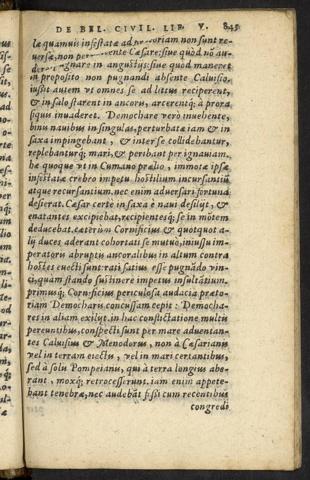 DE BEL. CIVIL. LIB. V. 845
læ quamuis infestatæ ad præcoriam non sunt re-
uersæ, non Cæsare: siue quòd nō au-
pugnare in angustijs: siue quòd maneret
in proposito non pugnandi absente Caluisio,
iussit autem vt omnes se ad littus reciperent,
& in salo starent in ancoris, arcerentq́; à prora
siquis inuaderet. Demochare verò inuehente,
binis nauibus in singulas, perturbatæ iam & in
saxa impingebant, & inter se collidebantur,
replebanturq́; mari, & peribant per ignauiam.
hæ quoque vt in Cumano prælio, immotæ ipsæ
infestatæ crebro impetu hostilium incursantiū
atque recursantium. nec enim aduersari fortuna
desierat. Cæsar certè in saxa è naui desilijt, &
enatantes excipiebat, recipientesq́; se in mōtem
deducebat. cæterùm Cornificius & quotquot a-
lij duces aderant cohortati se mutuò, iniussu im-
peratoris abruptis ancoralibus in altum contra
hostes euecti sunt: rati satius esse pugnādo vin-
ci, quàm stando sustinere impetus insultātium.
primusq́; Cornificius periculosa audacia præto-
riam Democharis concussam cepit: Democha-
res in aliam exilijt. in hac conflictatione multis
pereuntibus, conspecti sunt per mare aduentan-
tes Caluisius & Menodorus, non à Cæsarianis
vel in terram eiectis, vel in mari certantibus,
sed à solis Pompeianis, qui à terra longius abe-
rant, moxq́; retrocesserunt. iam enim appete-
bant tenebræ, nec audebāt fessi cum recentibus
congredi